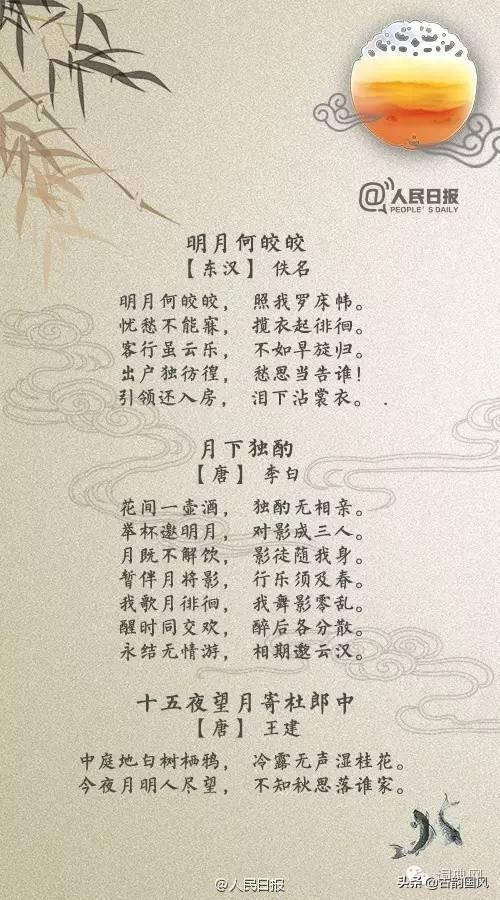 @人民日报
PEOPLE'S DAILY
明月何皎皎
【东汉】 佚名
明月何皎皎， 照我罗床帏。
忧愁不能寐， 揽衣起徘徊。
客行虽云乐， 不如早旋归。
出户独彷徨， 愁思当告谁！
引领还入房， 泪下沾裳衣。 .
月下独酌
【唐】 李白
花间一壶酒， 独酌无相亲。
举杯邀明月， 对影成三人。
月既不解饮， 影徒随我身。
暂伴月将影， 行乐须及春。
我歌月徘徊， 我舞影零乱。
醒时同交欢， 醉后各分散。
永结无情游， 相期邀云汉。
十五夜望月寄杜郎中
【唐】 王建
中庭地白树栖鸦， 冷露无声湿桂花。
今夜月明人尽望， 不知秋思落谁家。
词典网
@人民日报
头条 @古韵国风